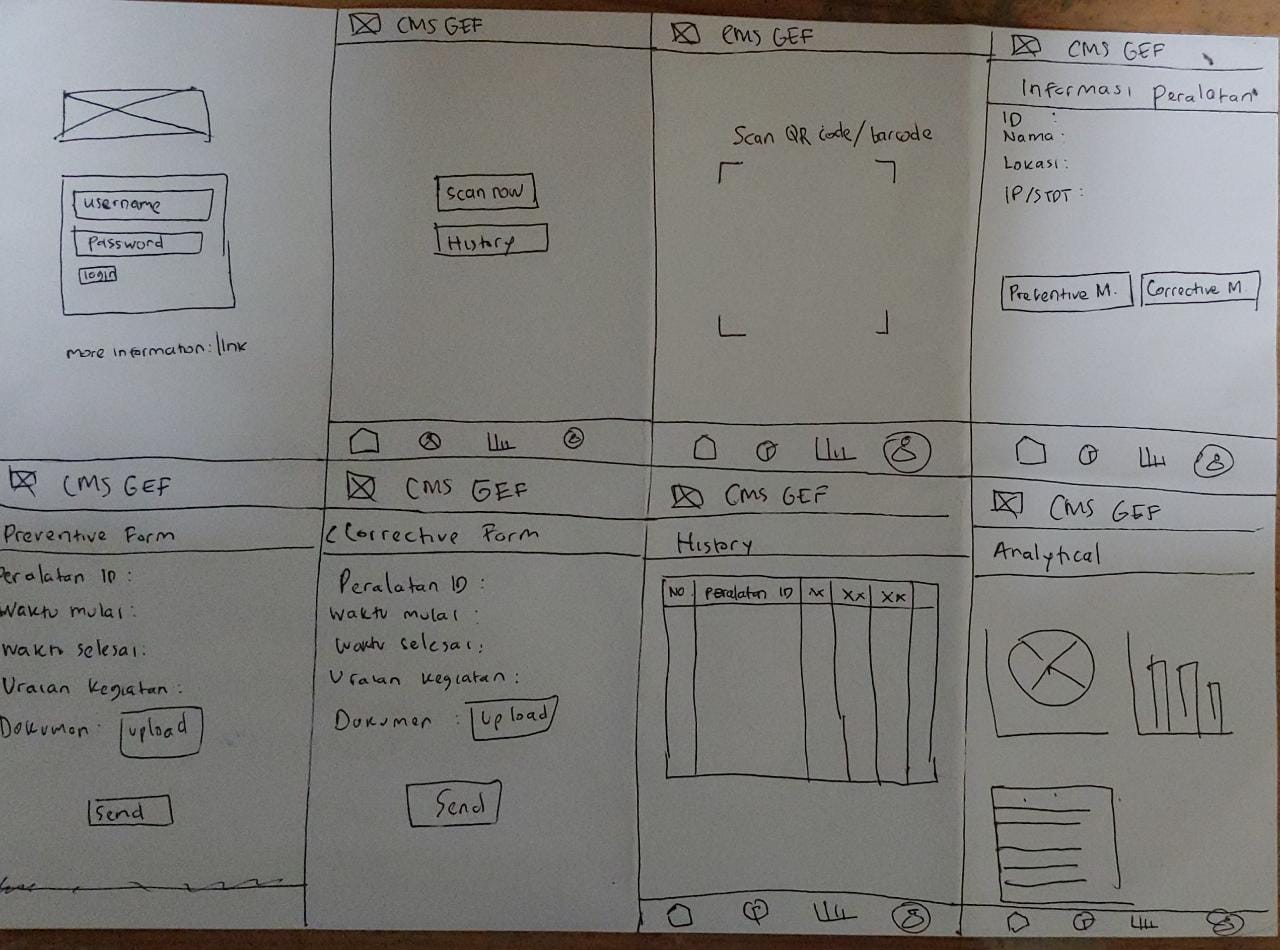 username
Password
login
more information: link
CMS GEF
scan now
History
CMS GEF
Scan QR code/barcode
CMS GEF
Informasi Peralatan
ID :
Nama :
Lokasi :
IP/STDT :
Preventive M.
Corrective M.
CMS GEF
Preventive Form
Peralatan ID :
Waktu mulai :
Waktu selesai :
Uraian Kegiatan :
Dokumen : upload
Send
CMS GEF
Corrective Form
Peralatan ID :
Waktu mulai :
Waktu selesai :
Uraian Kegiatan :
Dokumen : upload
Send
CMS GEF
History
NO Peralatan ID xx xx xx
CMS GEF
Analytical